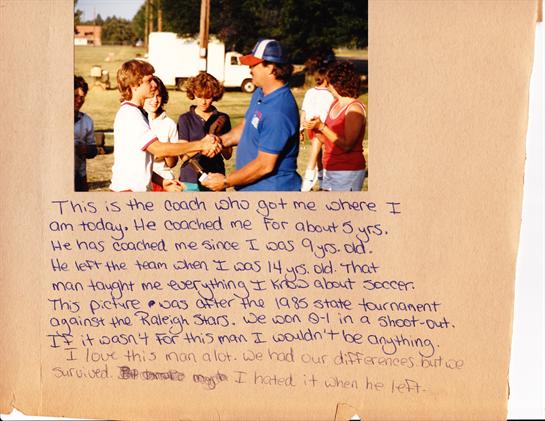 This is the coach who got me where I
am today. He coached me for about 5 yrs.
He has coached me since I was 9 yrs. old.
He left the team when I was 14 yrs. old. That
man taught me everything I know about soccer.
This picture was after the 1985 state tournament
against the Raleigh Stars. We won 0-1 in a shoot-out.
If it wasn't for this man I wouldn't be anything.
I love this man alot. we had our differences but we
survived. I hated it when he left.